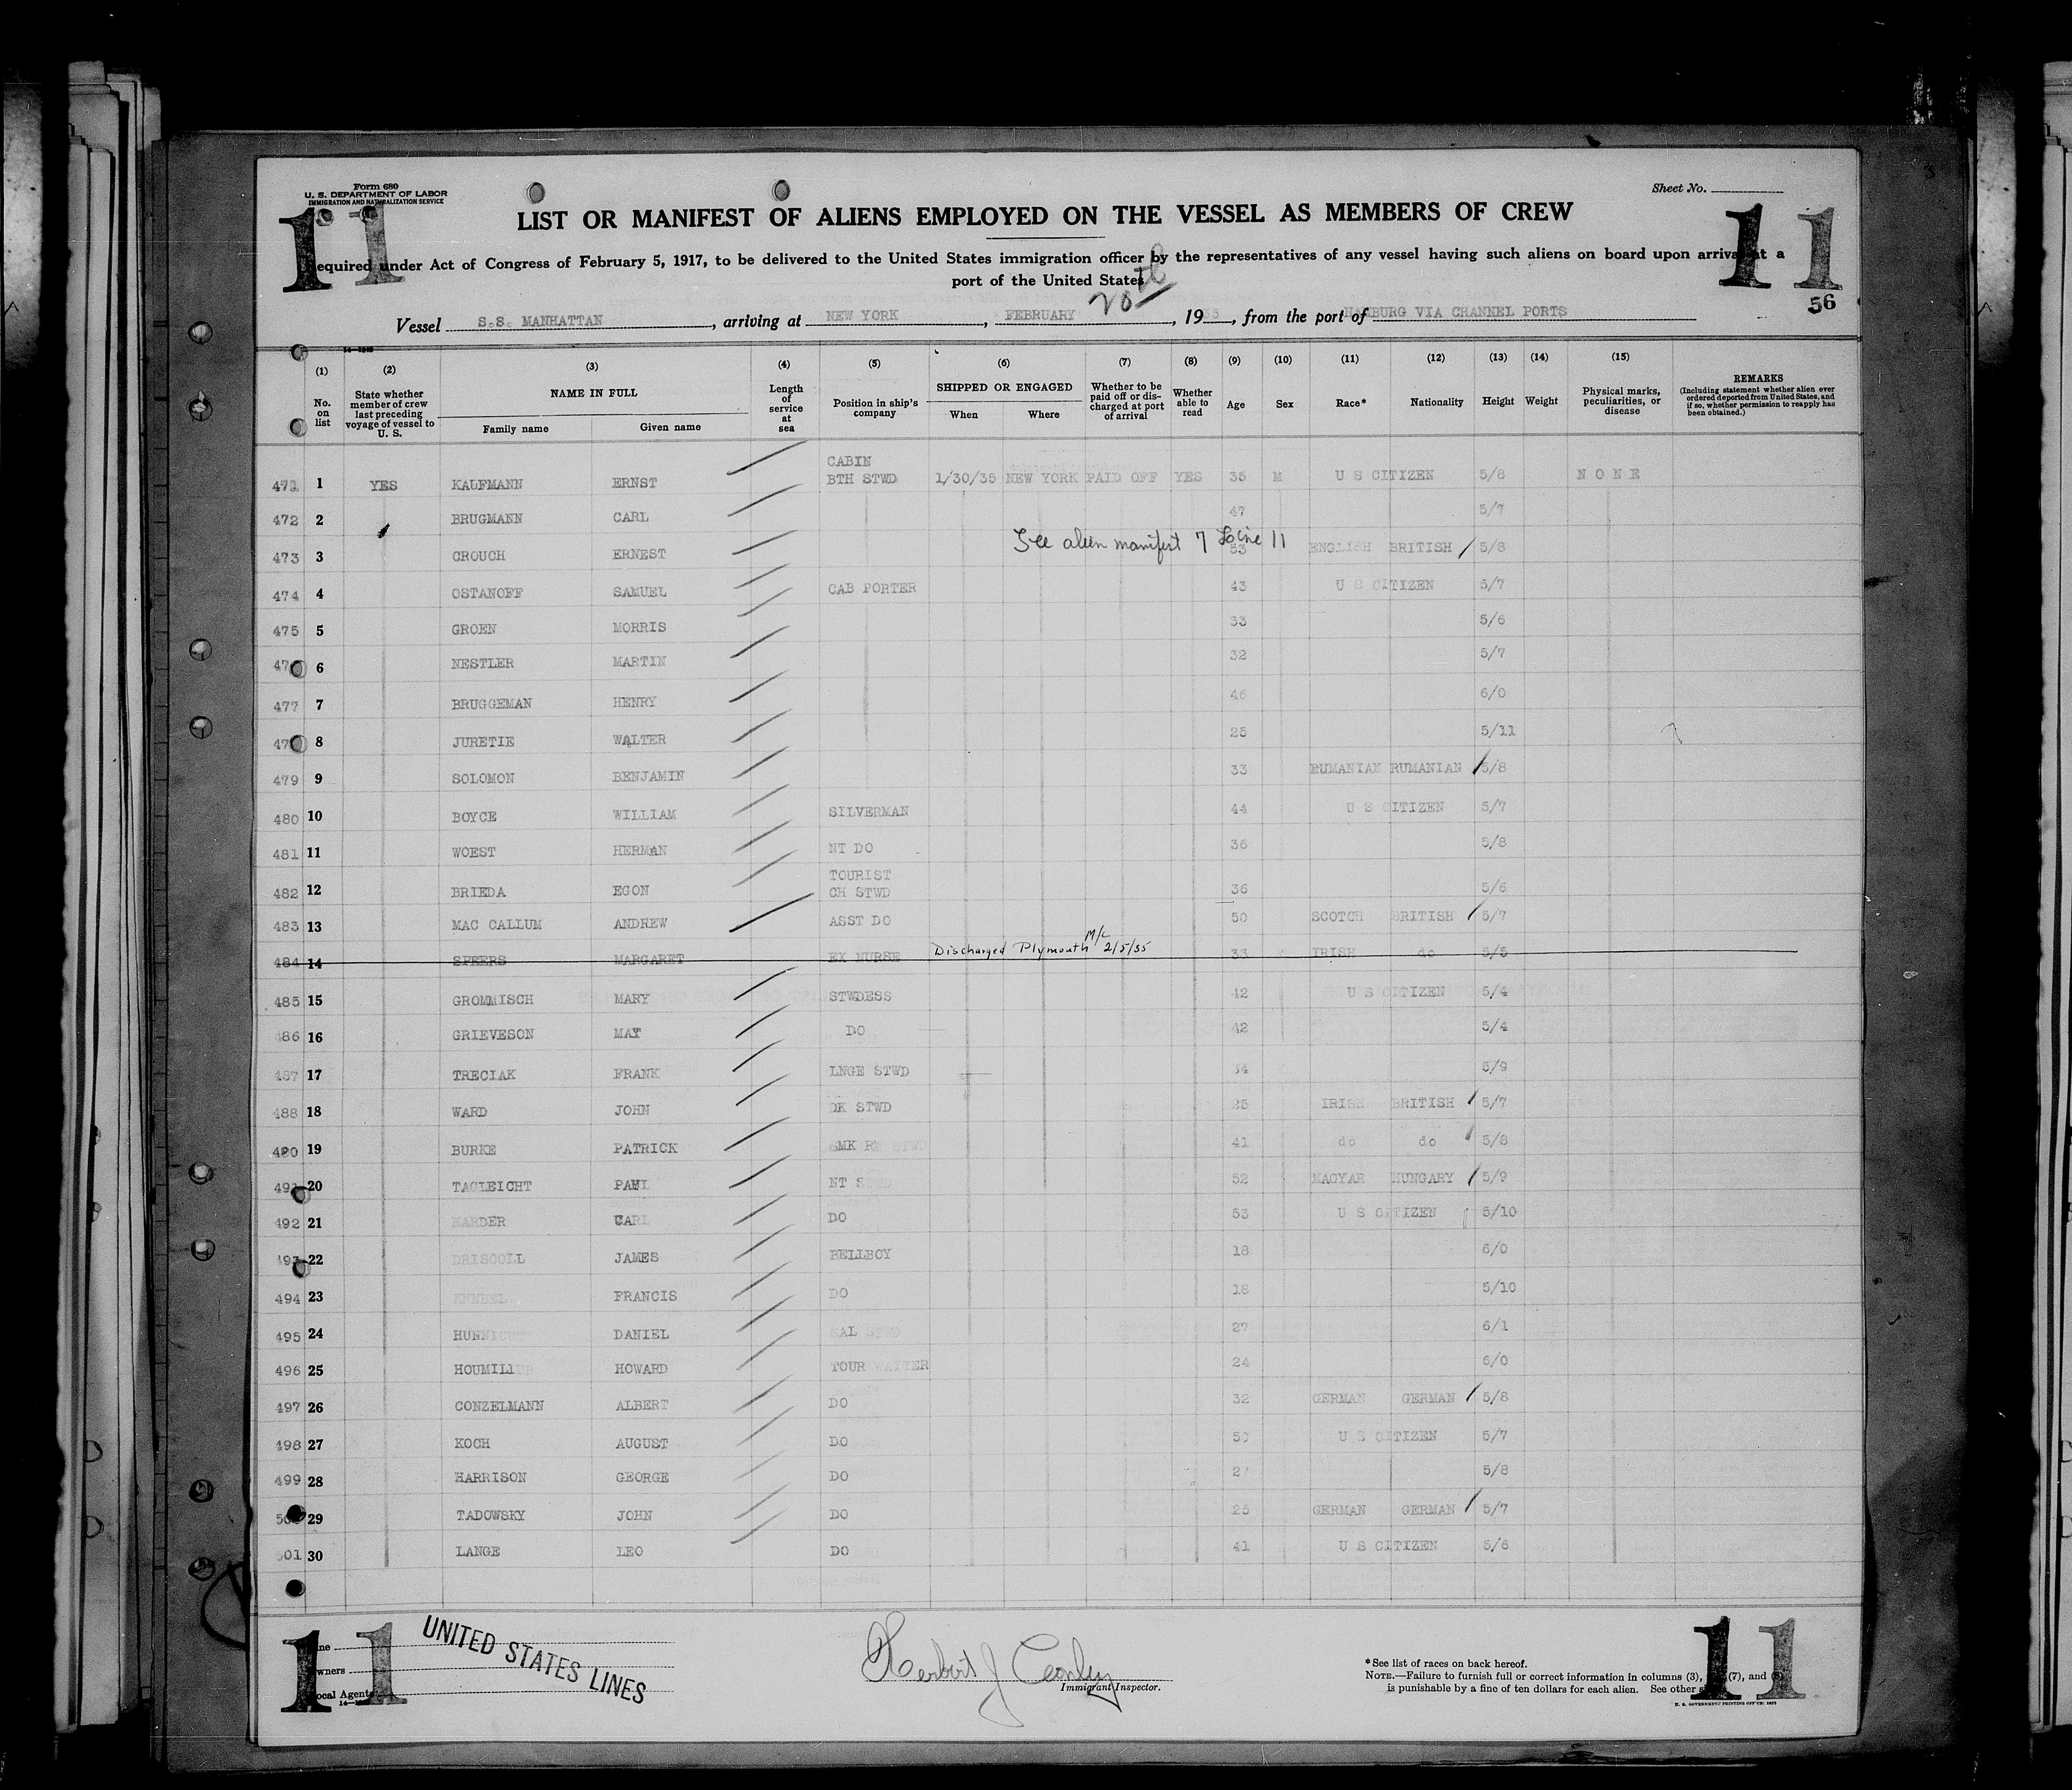 Form 680
U. S. DEPARTMENT OF LABOR
IMMIGRATION AND NATURALIZATION SERVICE
Sheet No.
11 11
LIST OR MANIFEST OF ALIENS EMPLOYED ON THE VESSEL AS MEMBERS OF CREW
Required under Act of Congress of February 5, 1917, to be delivered to the United States immigration officer by the representatives of any vessel having such aliens on board upon arrival at a
port of the United States
56
Vessel S.S. MANHATTAN, arriving at NEW YORK, FEBRUARY 20th, 1935, from the port of HAMBURG VIA CHANNEL PORTS
(1) (2) (3) (4) (5) (6) (7) (8) (9) (10) (11) (12) (13) (14) (15)
No. on list State whether member of crew last preceding voyage of vessel to U. S. NAME IN FULL Family name Given name Length of service at sea Position in ship's company SHIPPED OR ENGAGED When Where Whether to be paid off or discharged at port of arrival Whether able to read Age Sex Race* Nationality Height Weight Physical marks, peculiarities, or disease REMARKS (Including statement whether alien ever ordered deported from United States, and if so, whether permission to reapply has been obtained.)
471 1 YES KAUFMANN ERNST CABIN BTH STWD 1/30/35 NEW YORK PAID OFF YES 35 M U S CITIZEN 5/8 NONE
472 2 BRUGMANN CARL 47 5/7
473 3 CROUCH ERNEST See alien manifest 7 Line 11 53 ENGLISH BRITISH 5/8
474 4 OSTANOFF SAMUEL CAB PORTER 43 U S CITIZEN 5/7
475 5 GROEN MORRIS 33 5/6
6 NESTLER MARTIN 32 5/7
477 7 BRUGGEMAN HENRY 46 6/0
8 JURETIE WALTER 25 5/11
479 9 SOLOMON BENJAMIN 33 RUMANIAN RUMANIAN 5/8
480 10 BOYCE WILLIAM SILVERMAN 44 U S CITIZEN 5/7
481 11 WOEST HERMAN NT DO 36 5/8
482 12 BRIEDA EGON TOURIST CH STWD 36 5/6
483 13 MAC CALLUM ANDREW ASST DO 50 SCOTCH BRITISH 5/7
484 14 SPEERS MARGARET EX NURSE Discharged Plymouth M/C 2/5/35 33 IRISH do 5/5
485 15 GROMMISCH MARY STWDESS 42 U S CITIZEN 5/4
486 16 GRIEVESON MAY DO 42 5/4
487 17 TRECIAK FRANK LNGE STWD 34 5/9
488 18 WARD JOHN DK STWD 25 IRISH BRITISH 5/7
19 BURKE PATRICK SMK RM STWD 41 do do 5/8
491 20 TAGLEICHT PAUL NT STWD 52 MAGYAR HUNGARY 5/9
492 21 HARDER CARL DO 53 U S CITIZEN 5/10
493 22 DRISCOLL JAMES BELLBOY 18 6/0
494 23 FRANCIS DO 18 5/10
495 24 HUNNICUTT DANIEL SAL STWD 27 6/1
496 25 HOUMILLER HOWARD TOUR WAITER 24 6/0
497 26 CONZELMANN ALBERT DO 32 GERMAN GERMAN 5/8
498 27 KOCH AUGUST DO 50 U S CITIZEN 5/7
499 28 HARRISON GEORGE DO 5/8
29 TADOWSKY JOHN DO 25 GERMAN GERMAN 5/7
501 30 LANGE LEO DO 41 U S CITIZEN 5/6
11 11
Line
Owners
Local Agents
UNITED STATES LINES
Herbert J
Immigrant Inspector.
*See list of races on back hereof.
NOTE.—Failure to furnish full or correct information in columns (3), (7), and
is punishable by a fine of ten dollars for each alien. See other